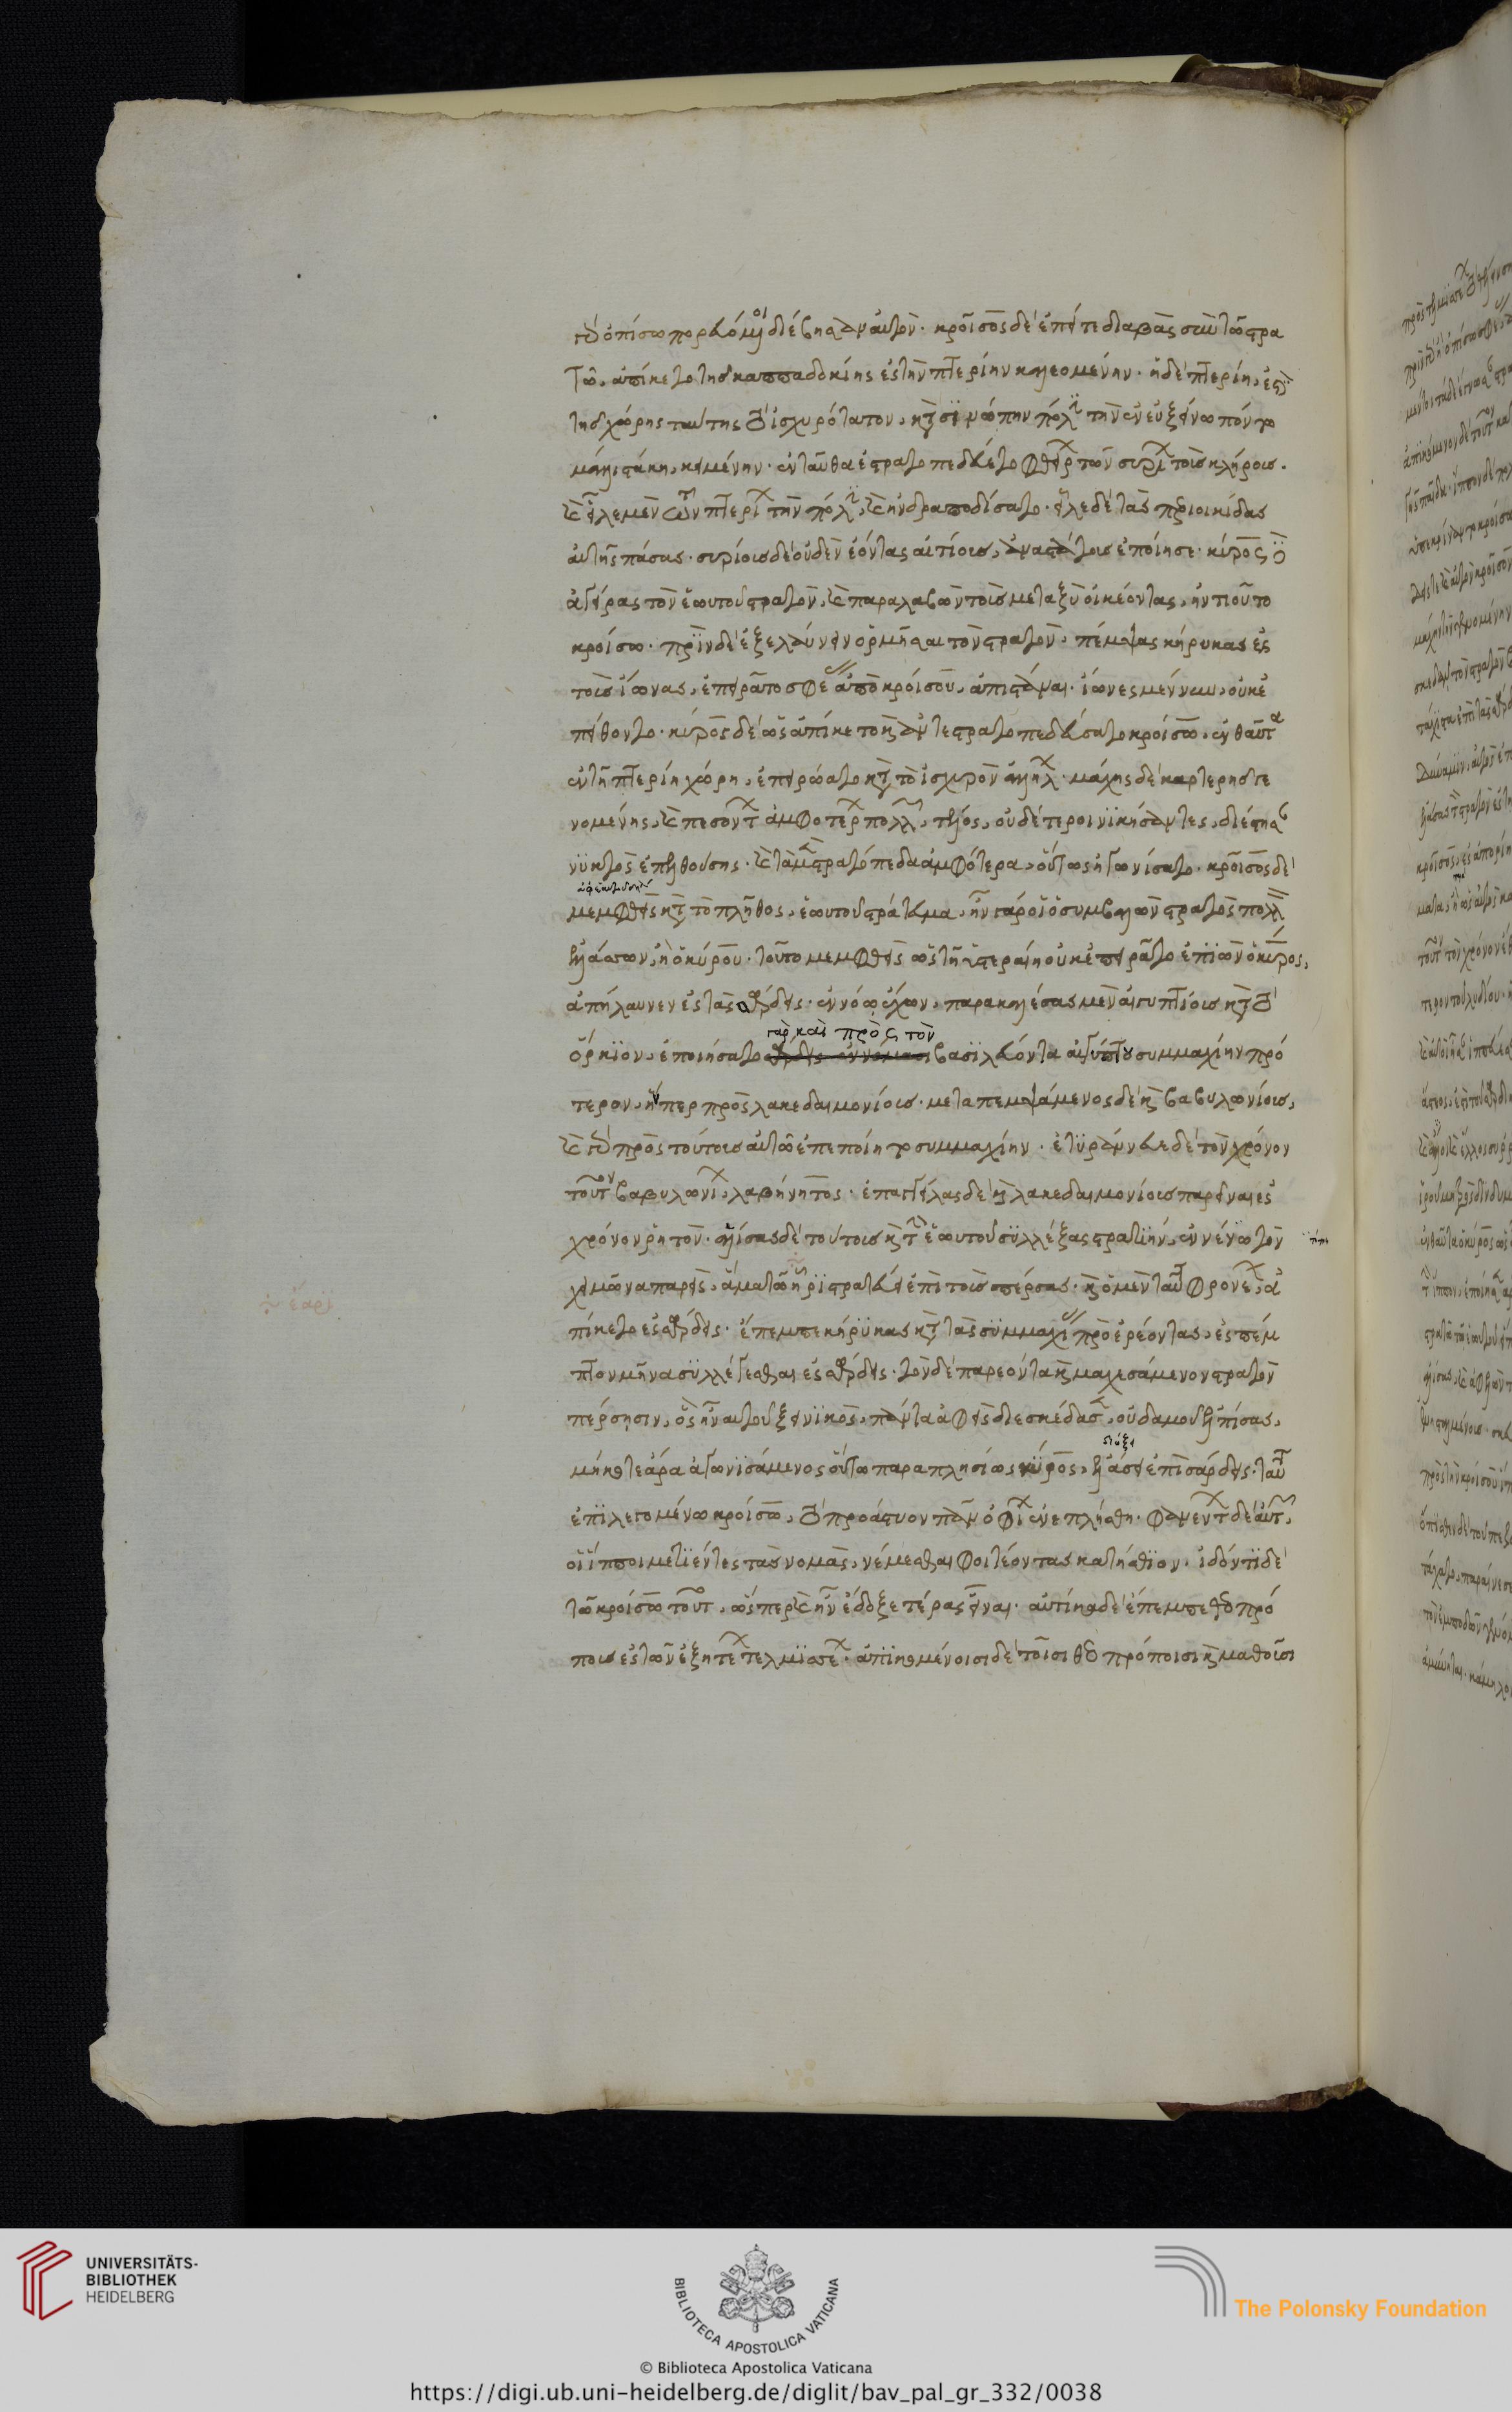 τὸ ὀπίσω πορευόμενοι διέβησαν αὐτόν. κροῖσος δὲ ἐπείτε διαβὰς σὺν τῶ στρα
τῶ, ἀπίκετο τῆς καππαδοκίης ἐς τὴν πτερίην καλεομένην. ἡ δὲ πτερίη, ἐστὶ
τῆς χώρης ταύτης τὸ ἰσχυρότατον, κατὰ σινώπην πόλιν τὴν ἐν εὐξείνω πόντω
μάλιστάκη κειμένην. ἐνταῦθα ἐστρατοπεδεύετο φθείρων τῶν συρίων τοὺς κλήρους.
καὶ εἷλε μὲν τῶν πτερίων τὴν πόλιν, καὶ ἠνδραποδίσατο. εἷλε δὲ τὰς περιοικίδας
αὐτῆς πάσας. συρίους δὲ οὐδὲν ἐόντας αἰτίους, ἀναστάτους ἐποίησε. κῦρος δὲ
ἀγείρας τὸν ἑωυτοῦ στρατὸν, καὶ παραλαβὼν τοὺς μεταξὺ οἰκέοντας, ἠντιοῦτο
κροίσω. πρὶν δὲ ἐξελαύνειν ὁρμῆσαι τὸν στρατὸν, πέμψας κήρυκας ἐς
τοὺς ἴωνας, ἐπειρᾶτο σφέας ἀπὸ κροίσου, ἀπιστάναι. ἴωνες μέν νυν, οὐκ ἐ
πείθοντο. κῦρος δὲ ὡς ἀπίκετο καὶ ἀντεστρατοπεδεύσατο κροίσω, ἐνθαῦτα
ἐν τῆ πτερίη χώρη, ἐπειρώατο κατὰ τὸ ἰσχυρὸν ἀλλήλων. μάχης δὲ καρτερῆς γε
νομένης, καὶ πεσόντων ἀμφοτέρων πολλῶν, τέλος, οὐδέτεροι νικήσαντες, διέστησαν
νυκτὸς ἐπελθούσης. καὶ τὰ μὲν στρατόπεδα ἀμφότερα, οὕτως ἠγωνίσατο. κροῖσος δὲ
μεμφθεὶς κατὰ τὸ πλῆθος, ἑωυτοῦ στράτευμα, ἦν γάρ οἱ ὁ συμβαλὼν στρατὸς πολλὸν
ἐλάσσων, ἢ ὁ κύρου. τοῦτο μεμφθεὶς ὡς τῆ ὑστεραίη οὐκ ἐπειρᾶτο ἐπιὼν ὁ κῦρος,
ἀπήλαυνεν ἐς τὰς σάρδεις. ἐν νόω ἔχων, παρακαλέσας μὲν αἰγυπτίους κατὰ τὸ
γὰρ καὶ πρὸς τὸν
ὅρκιον, ἐποιήσατο βασιλεύοντα αἰγύπτου συμμαχίην πρό
τερον, ἤπερ πρὸς λακεδαιμονίους. μεταπεμψάμενος δὲ καὶ βαβυλωνίους,
καὶ γὰρ πρὸς τούτους αὐτῶ ἐπεποίητο συμμαχίην. ἐτυράννευε δὲ τὸν χρόνον
τοῦτον βαβυλωνίων, λαβήνητος. ἐπαγγείλας δὲ καὶ λακεδαιμονίους παρεῖναι ἐς
χρόνον ῥητὸν. ἁλίσας δὲ τούτους καὶ τὴν ἑωυτοῦ συλλέξας στρατιὴν, ἐν νένωτο τὸν
χειμῶνα παρεὶς, ἅμα τῶ ἦρι στρατεύειν ἐπὶ τοὺς πέρσας. καὶ ὁ μὲν ταῦτα φρονέων, ἀ
πίκετο ἐς σάρδεις. ἔπεμπε κήρυκας κατὰ τὰς συμμαχίας προερέοντας, ἐς πέμ
πτον μῆνα συλλέγεσθαι ἐς σάρδεις. τὸν δὲ παρεόντα καὶ μαχεσάμενον στρατὸν
πέρσησιν, ὃς ἦν αὐτοῦ ξεινικὸς, πάντα ἀφεὶς διεσκέδασεν, οὐδαμοῦ ἐλπίσας,
μήκοτε ἄρα ἀγωνισάμενος οὕτω παραπλησίως κῦρος, ἐλάσει ἐπὶ σάρδεις. ταῦτα
ἐπιλεγομένω κροίσω, τὸ προάστυον πᾶν ὀφίων ἐνεπλήσθη. φανέντων δὲ αὐτῶν,
οἱ ἵπποι μετιέντες τὰς νομὰς, νέμεσθαι φοιτέοντες κατήσθιον. ἰδόντι δὲ
τῶ κροίσω τοῦτο, ὥσπερ καὶ ἦν ἔδοξε τέρας εἶναι. αὐτίκα δὲ ἔπεμπε θεοπρό
πους ἐς τῶν ἐξηγητέων τελμισσέων. ἀπικομένοισι δὲ τοῖσι θεοπρόποισι καὶ μαθοῦσι
UNIVERSITÄTS-
BIBLIOTHEK
HEIDELBERG
BIBLIOTECA APOSTOLICA VATICANA
The Polonsky Foundation
© Biblioteca Apostolica Vaticana
https://digi.ub.uni-heidelberg.de/diglit/bav_pal_gr_332/0038